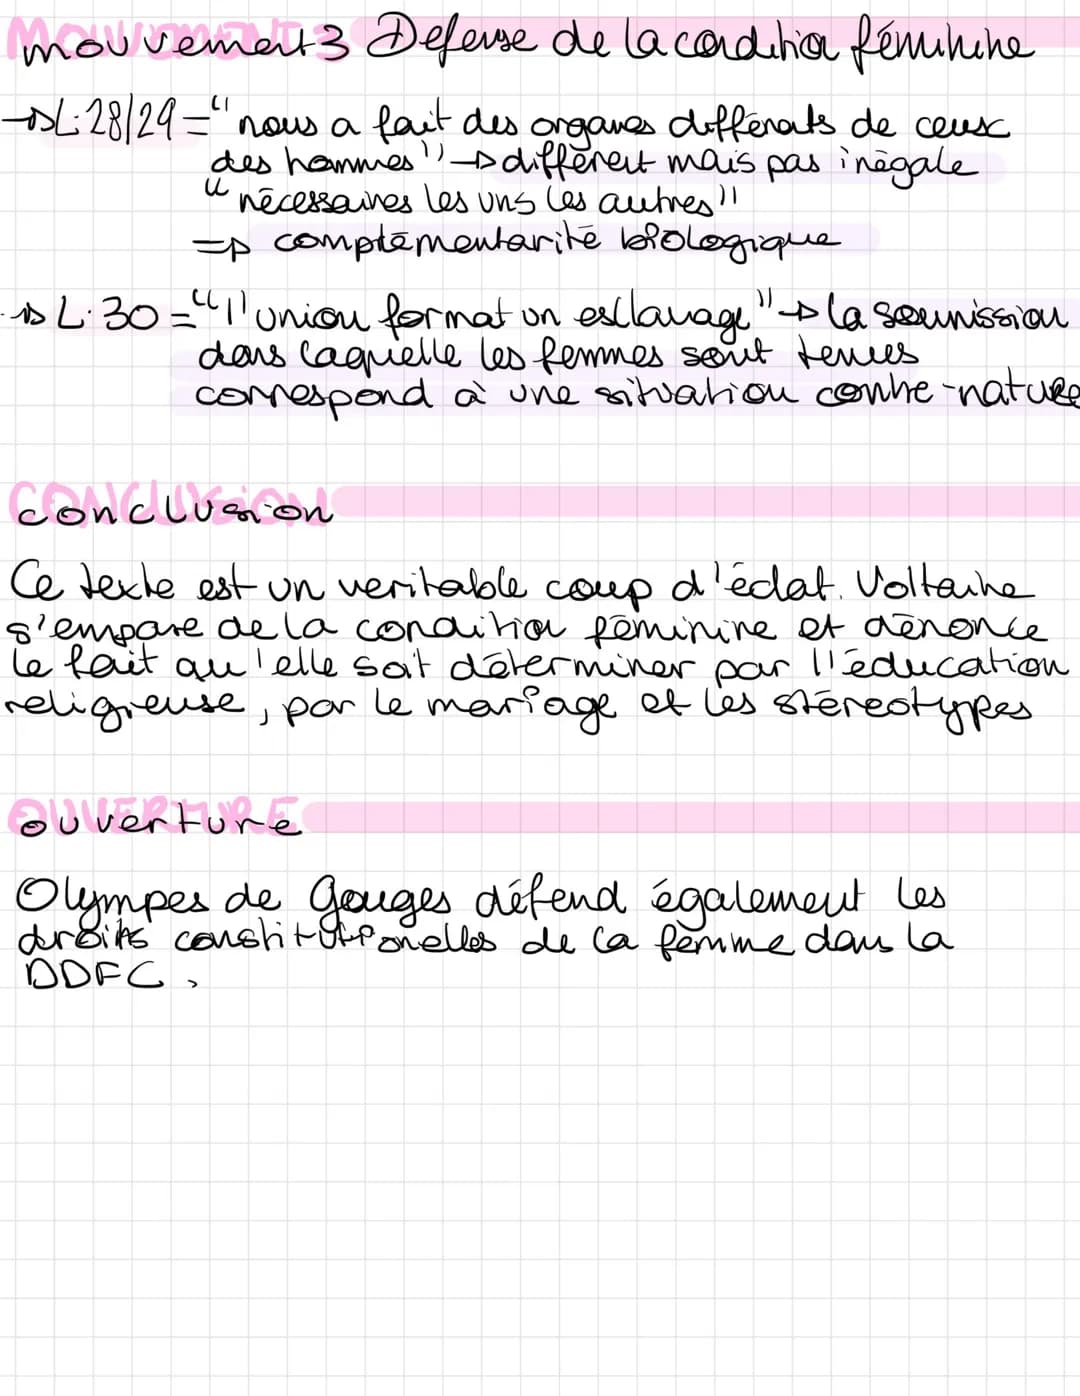 mouvement 3 Defense de la condition féminine
→L:28/29 = "nous a fait des organes différents de ceux
des hommes" → différent mais pas inégale
"nécessaires les uns les autres"
=> complémentarité biologique
→ L.30 = "l'union format un esclavage" → la soumission
dans laquelle les femmes sont tenues
correspond à une situation contre-nature
CONCLUSION
conclusion
Ce texte est un veritable coup d'éclat. Voltaire
s'empare de la condition féminine et dénonce
le fait qu'elle soit déterminer par l'éducation
religieuse, par le mariage et les stéréotypes
OUVERTURE
ouverture
Olympes de Gouges défend également les
droits constitutionelles de la femme dans la
DDFC.